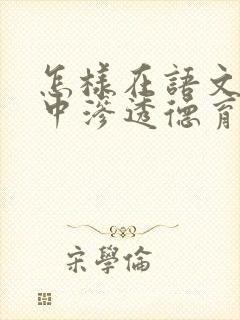 怎様在語文
中滲透德育
宋學倫